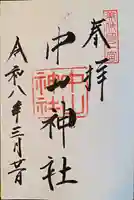 奉拝
中山神社
中山
神社
令和八年三月廿日